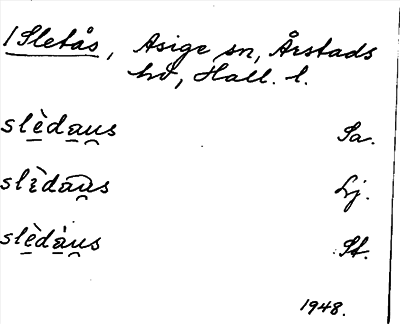 1 Sletås, Asige sn, Årstads
hd, Hall. l.
slèdaus Sa.
slèdaus Lj.
slèdàus St.
1948.